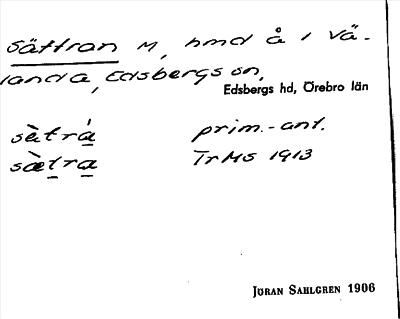 Sättran M, hmd å 1 Vä-
landa, Edsbergs sn,
Edsbergs hd, Örebro län
sètrá prim.-ant.
sætra TrMs 1913
JÖRAN SAHLGREN 1906